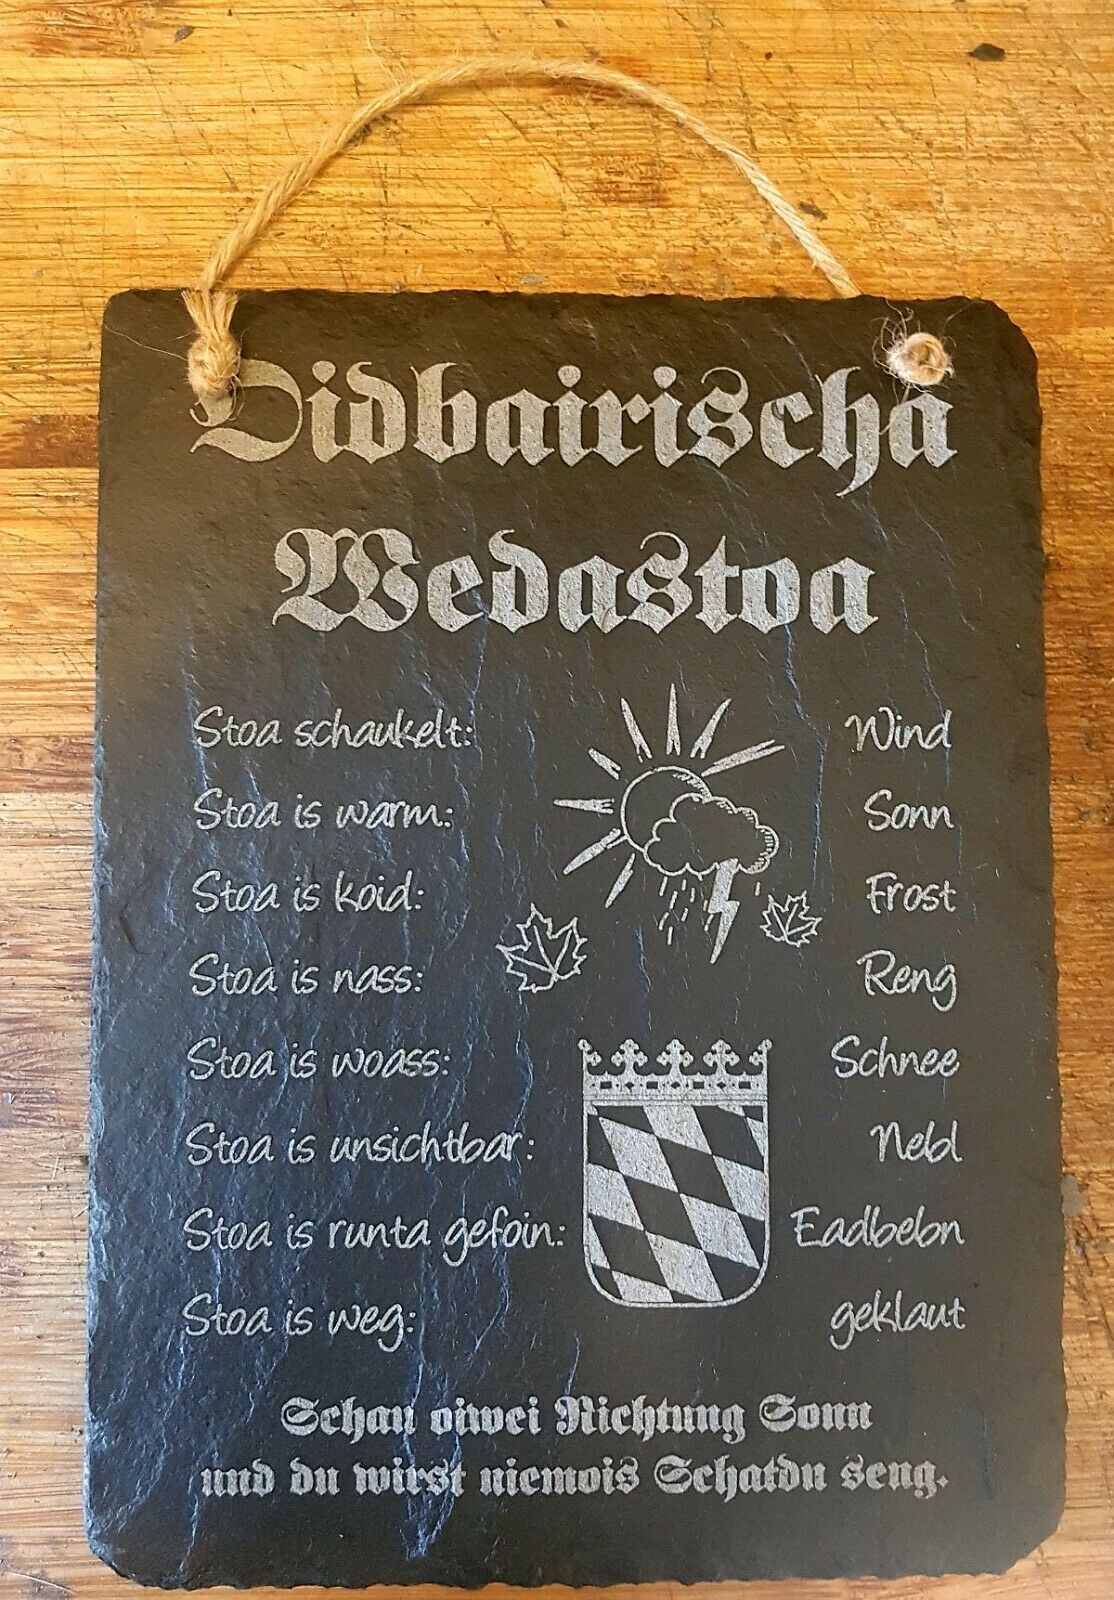 Oidbairischa
Wedastoa
Stoa schaukelt: Wind
Stoa is warm: Sonn
Stoa is koid: Frost
Stoa is nass: Reng
Stoa is woass: Schnee
Stoa is unsichtbar: Nebl
Stoa is runta gefoin: Eadbebn
Stoa is weg: geklaut
Schau oiwei Richtung Sonn
und du wirst niemois Schatdn seng.